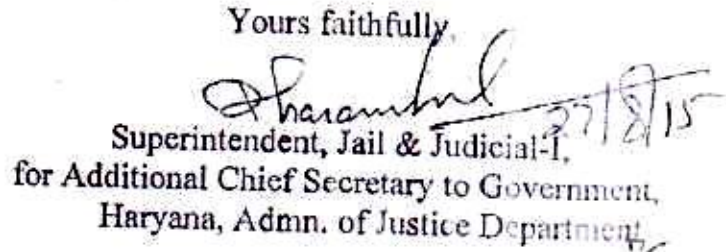 Yours faithfully,
27/8/15
Superintendent, Jail & Judicial-I,
for Additional Chief Secretary to Government,
Haryana, Admn. of Justice Department